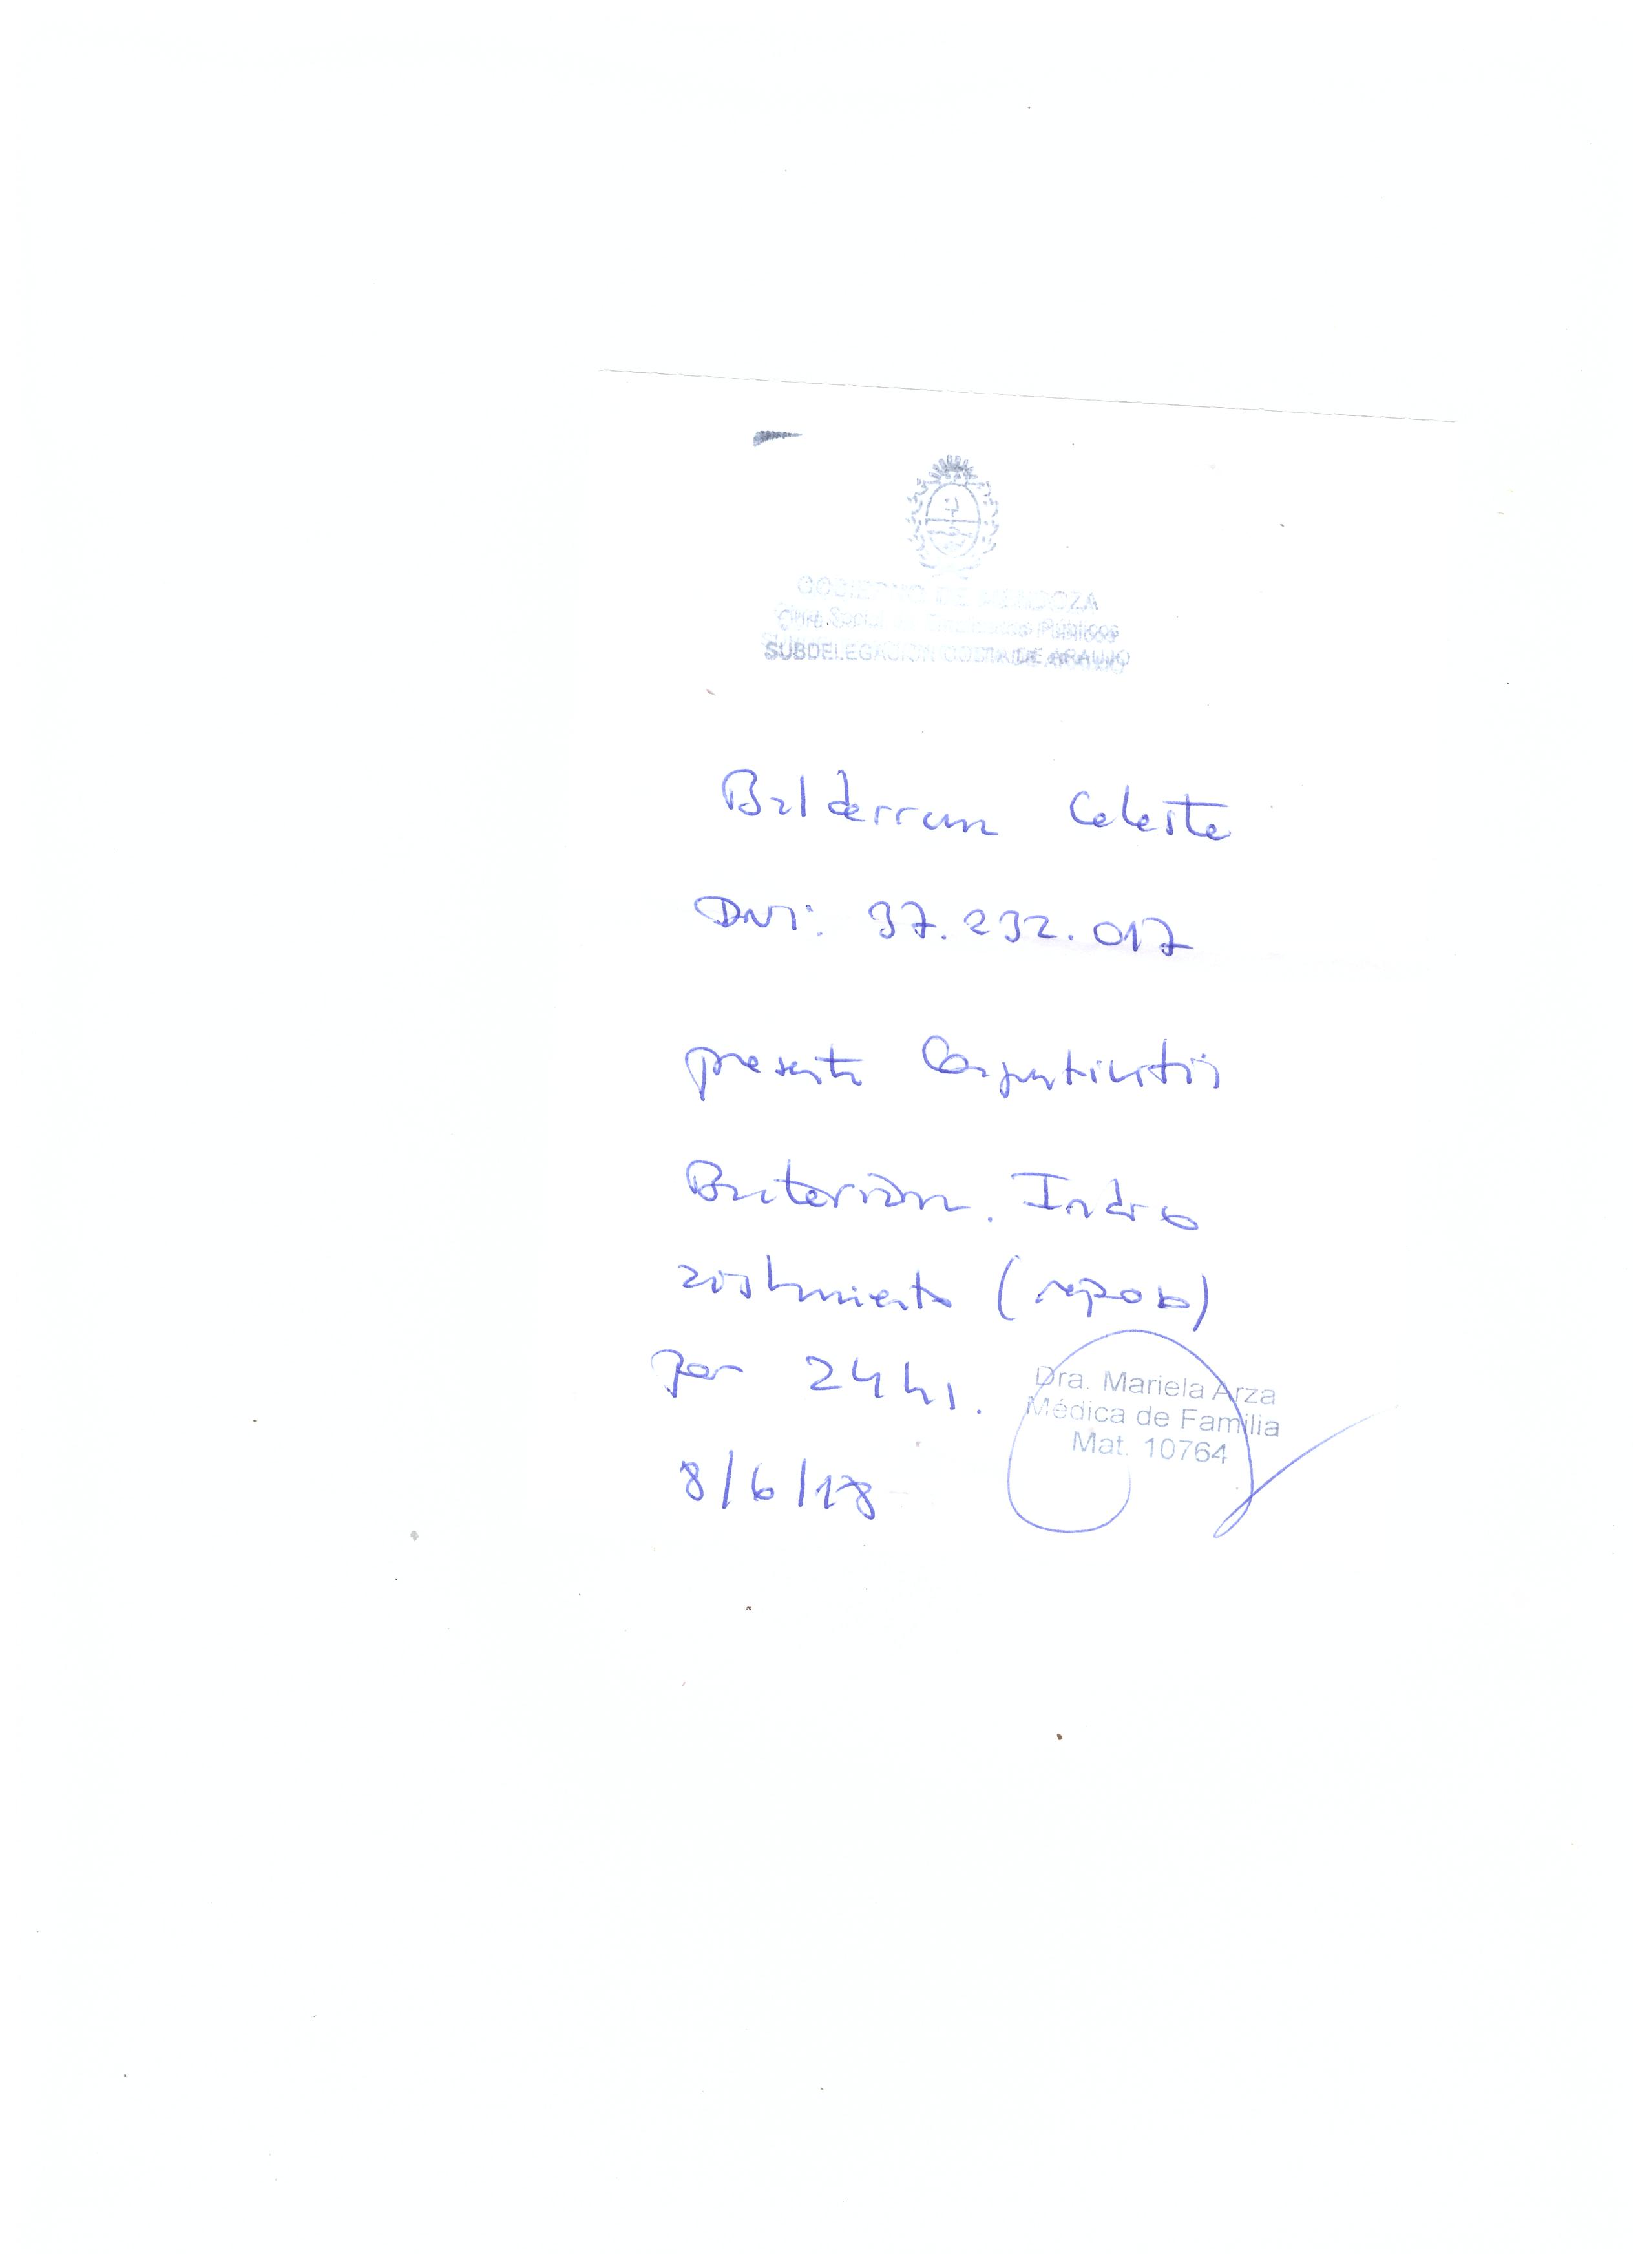 GOBIERNO DE MENDOZA
Obra Social de Empleados Públicos
SUBDELEGACION COSTA DE ARAUJO
Balderrama Celeste
DNI: 37.232.017
presenta Conjuntivitis
Bacteriana. Indico
aislamiento (reposo)
por 24 hs.
Dra. Mariela Arza
Médica de Familia
Mat. 10764
8/6/18